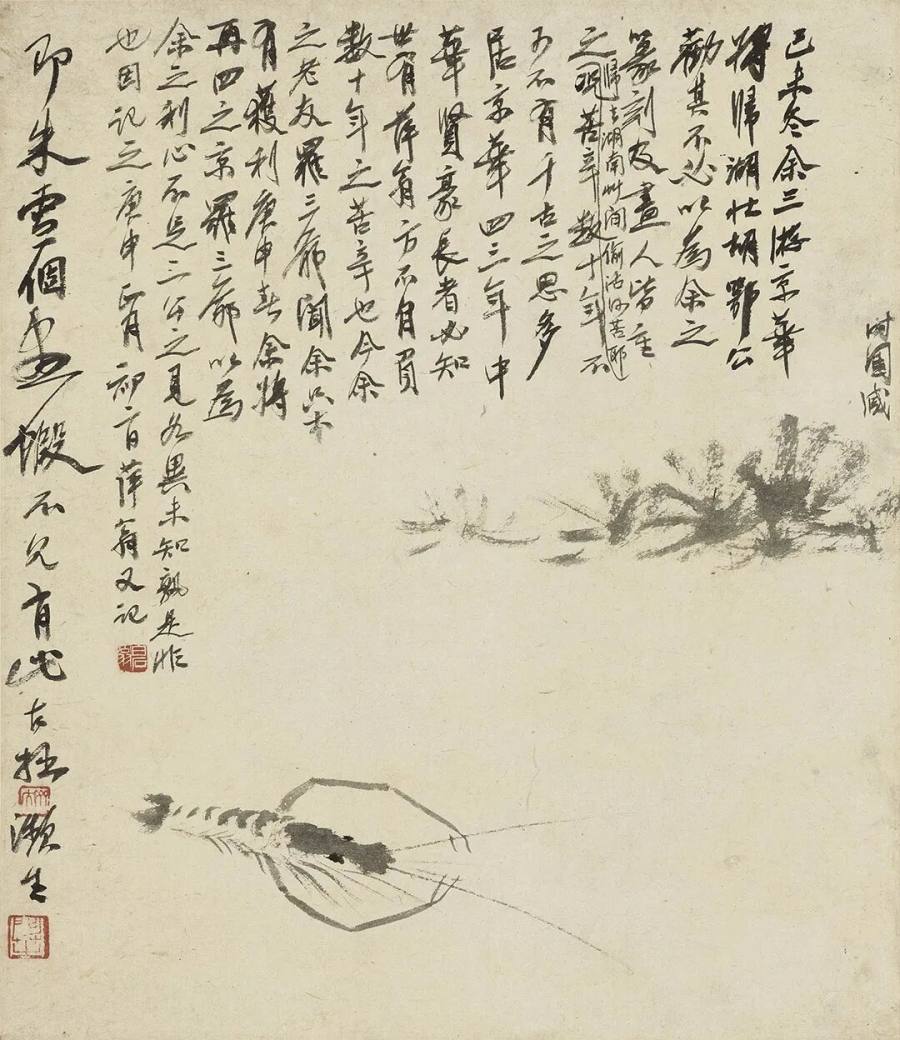 己未冬余三游京華
將歸湖壯胡鄂公
勸其不必以為余之
篆刻及畫人皆重
歸去湖南草間偷活何苦耶
之況苦辛數十年不
可不有千古之思多
居京華四三年中
華賢豪長者必知
世有萍翁方不自負
數十年之苦辛也今余
之老友羅三爺聞余只木
有獲利庚申春余將
再四之京羅三爺以為
余之利心不忘二公之見各異未知孰是非
也因記之庚申正月初日萍翁又記
即朱雪個畫蝦不見有此古拙瀕生